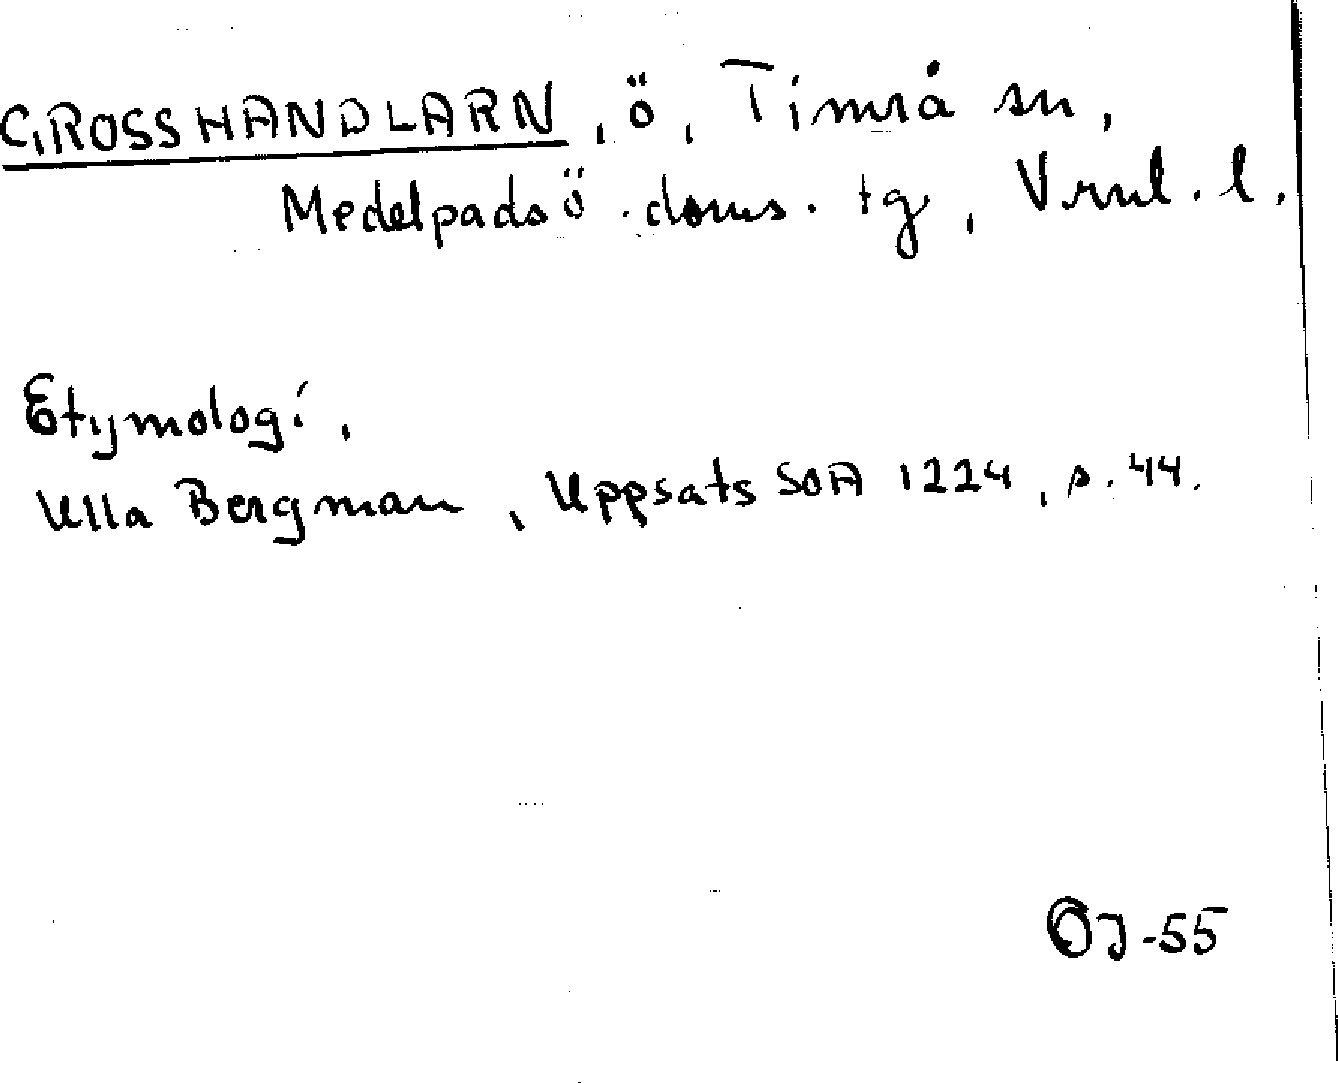 GROSSHANDLARN, ö, Timrå sn,
Medelpads ö. doms. tg, Vrnl. l.
Etymologi.
Ulla Bergman, Uppsats SOA 1224, s. 44.
OJ-55